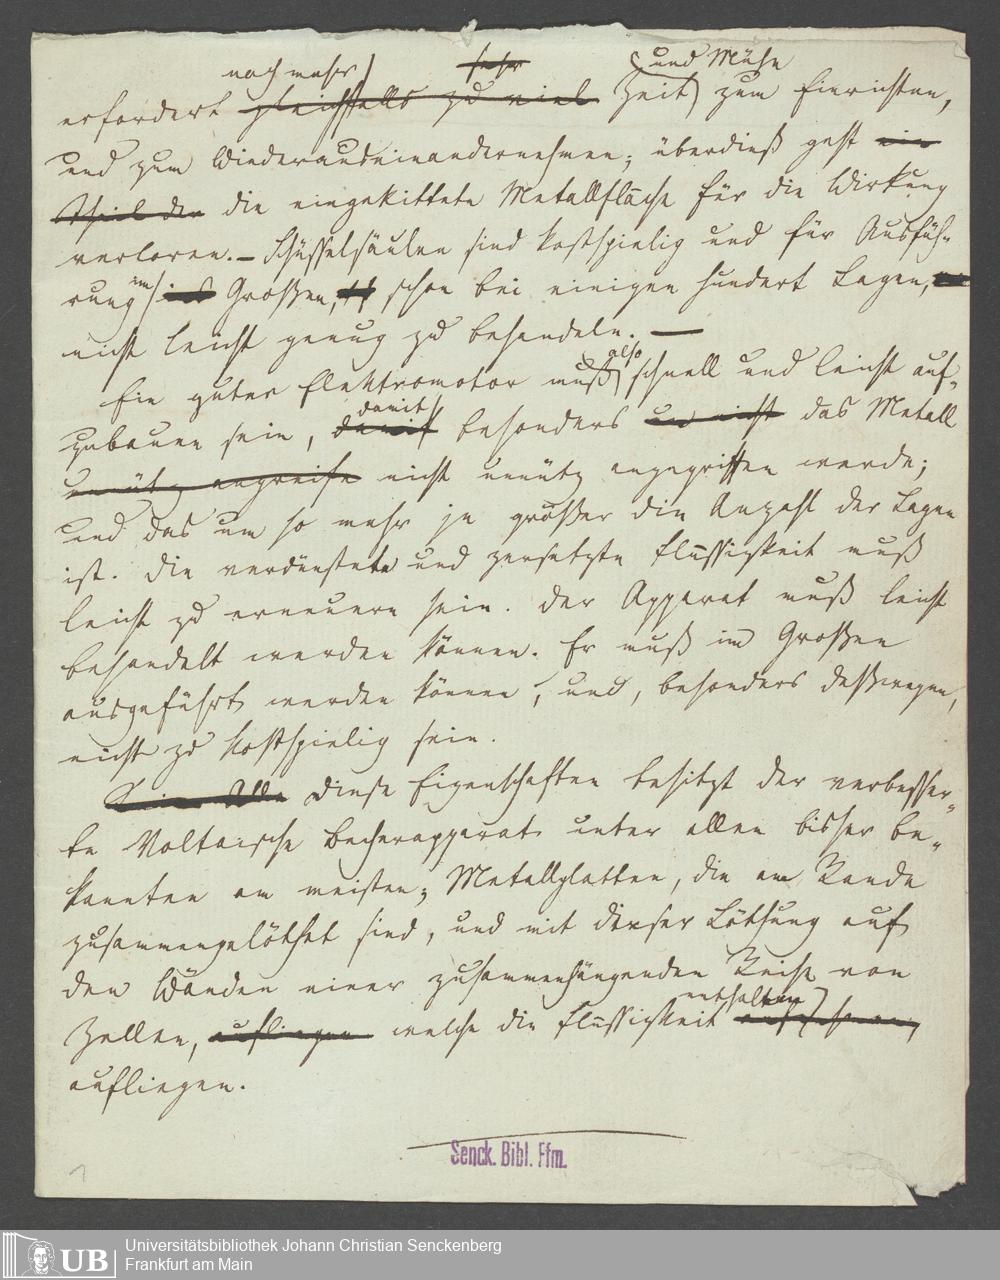 noch mehr sehr und Mühe
erfordert gleichfalls zu viel Zeit zum Einrichten,
und zum Wiederauseinandernehmen; überdieß geht ein
Theil der die eingekittete Metallfläche für die Wirkung
verloren. – Schüsselsäulen sind kostspielig und für Ausfüh-
rung im Großen, schon bei einigen hundert Lagen,
nicht leicht genug zu behandeln. —
Ein guter Elektromotor muß also schnell und leicht auf-
zubauen sein, damit damit besonders und nicht das Metall
unnütz angreife nicht unnütz angegriffen werde;
und das um so mehr je größer die Anzahl der Lagen
ist. Die verdünstete und zersetzte Flüssigkeit muß
leicht zu erneuern sein. Der Apparat muß leicht
behandelt werden können. Er muß im Großen
ausgeführt werden können, und, besonders deßwegen,
nicht zu kostspielig sein.
Diese Eigenschaften besitzt der verbesser-
te Voltaische Becherapparat unter allen bisher be-
kannten am meisten; Metallplatten, die am Rande
zusammengelöthet sind, und mit dieser Löthung auf
den Wänden einer zusammenhängenden Reihe von
Zellen, aufliegen welche die Flüssigkeit enthalten
aufliegen.
Senck. Bibl. Ffm.
1
UB
Universitätsbibliothek Johann Christian Senckenberg
Frankfurt am Main